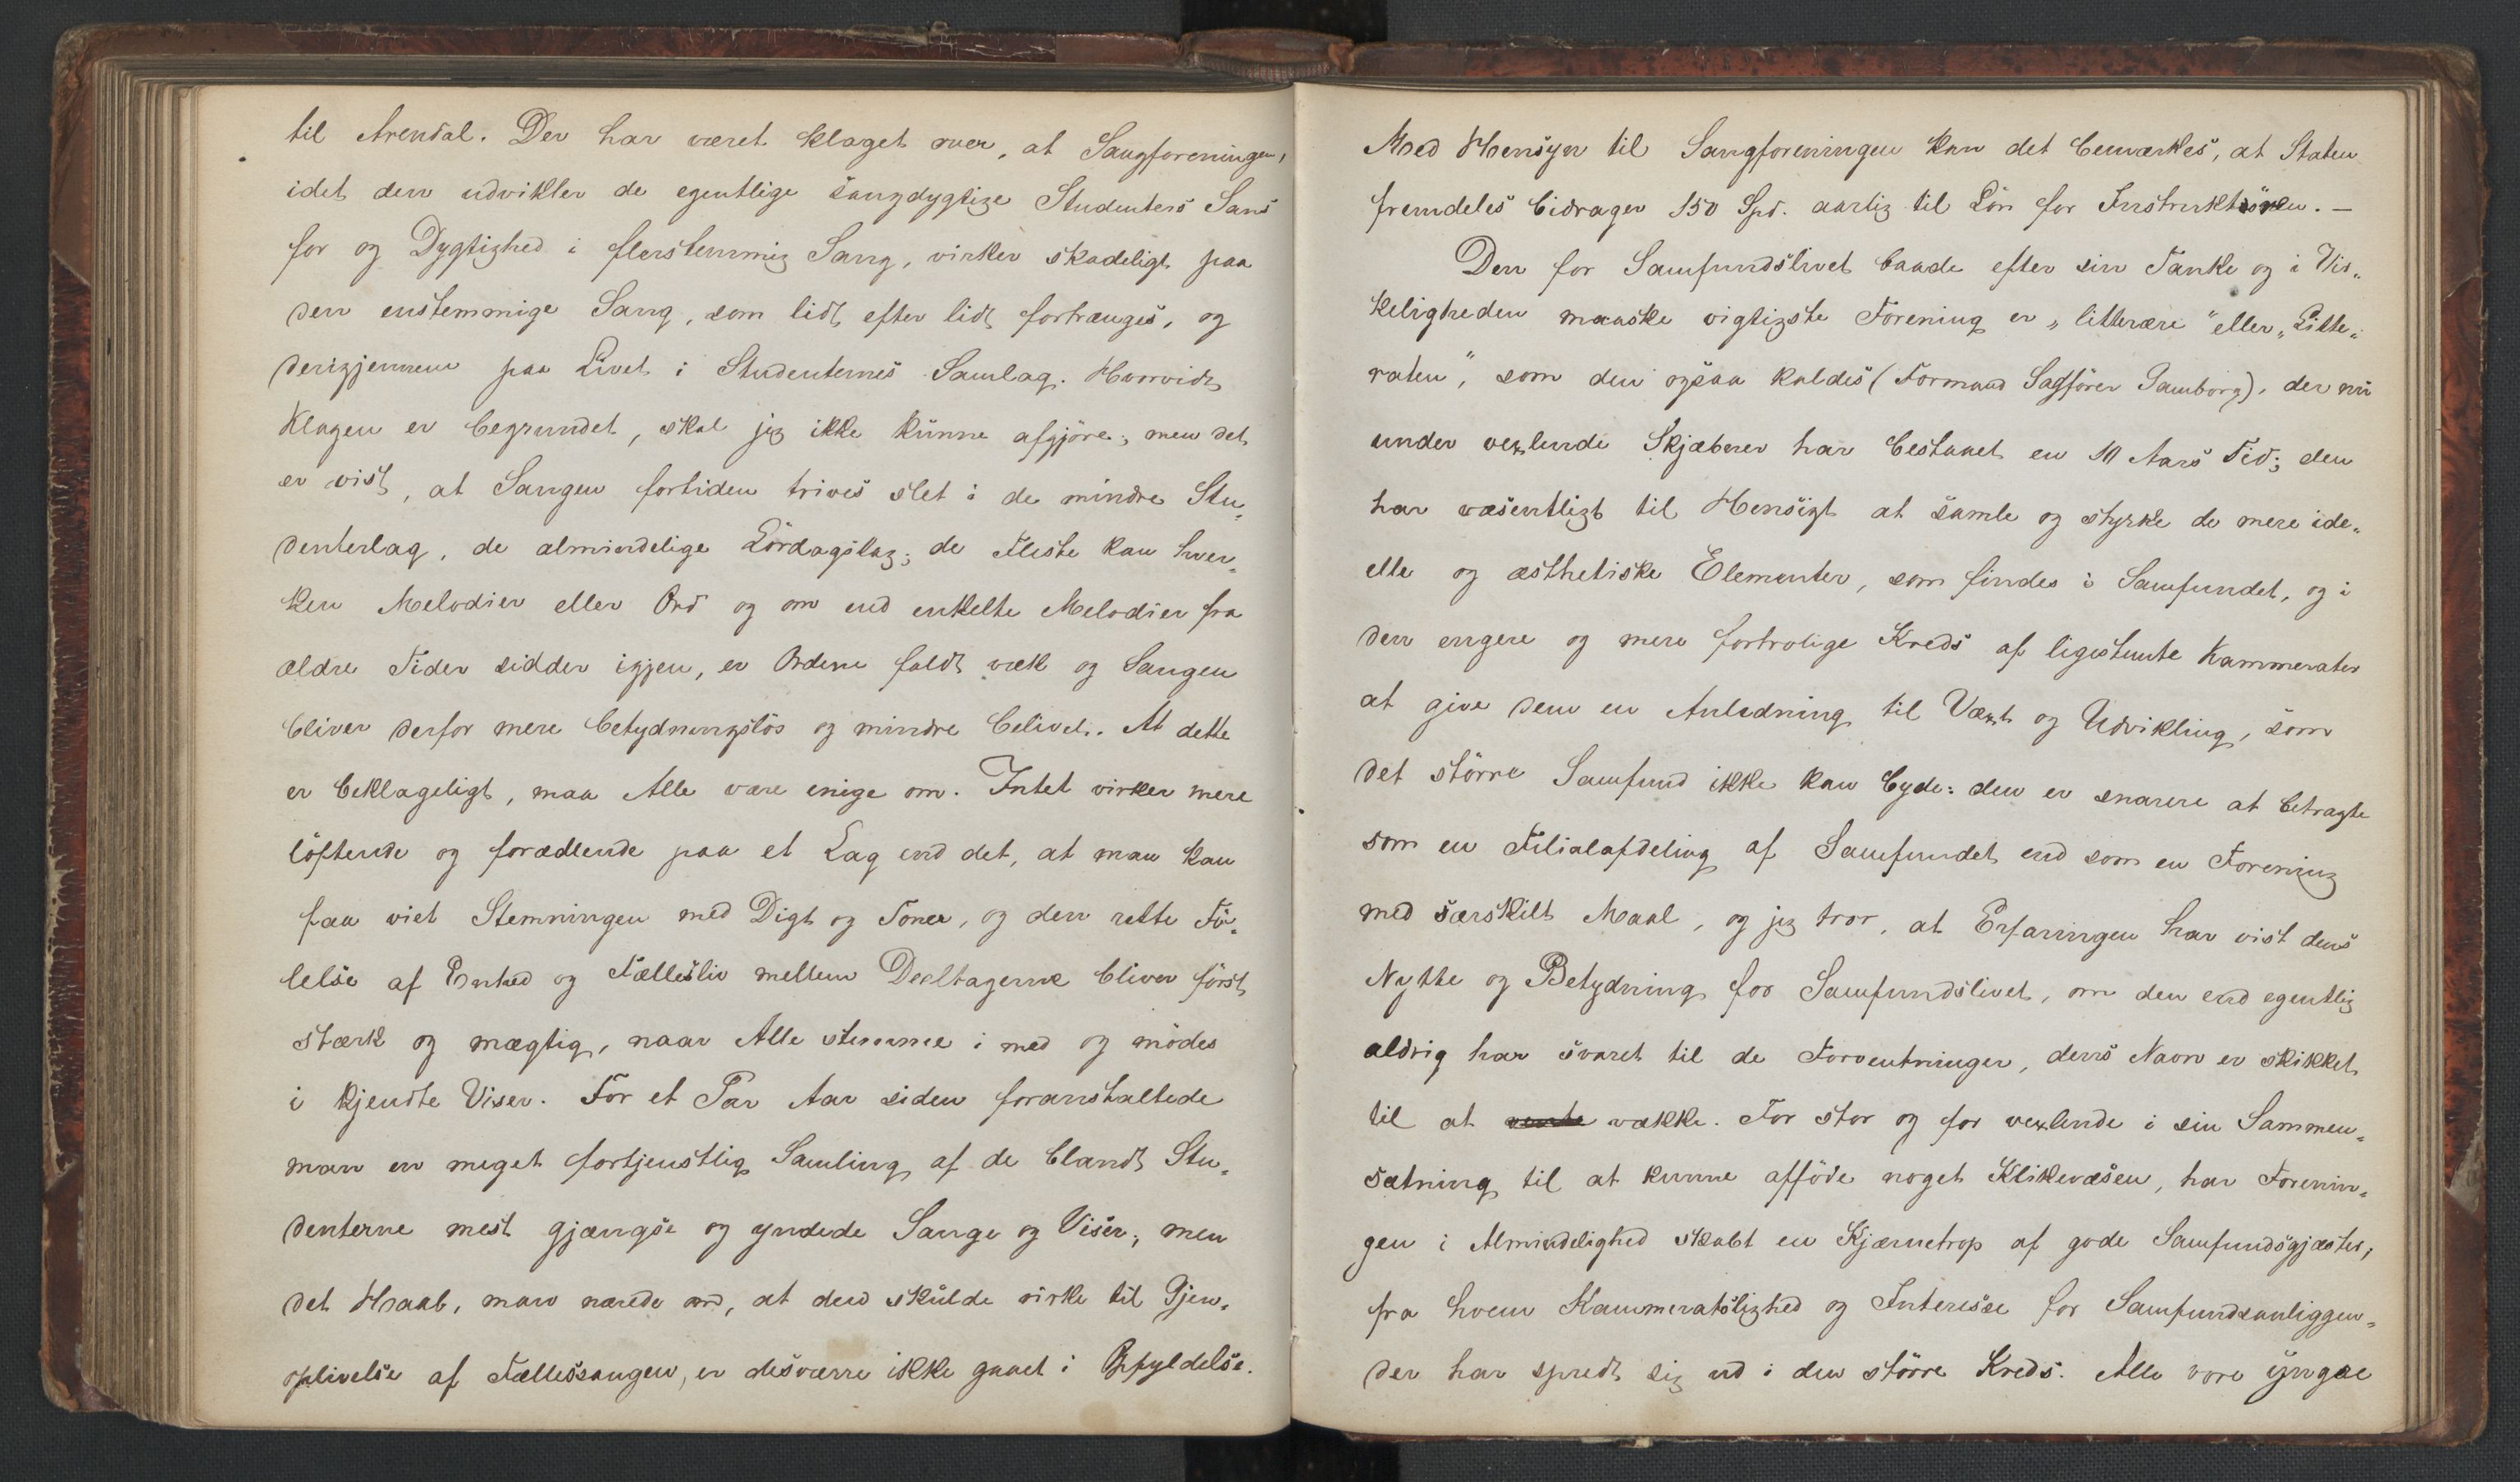 til Arendal. Der har været klaget over, at Sangforeningen,
idet den udvikler de egentlige sangdygtige Studenters Sans
for og Dygtighed i flerstemmig Sang, virker skadeligt paa
den enstemmige Sang, som lidt efter lidt fortrænges, og
derigjennem paa Livet i Studenternes Samlag. Hvorvidt
Klagen er begrundet, skal jeg ikke kunne afgjöre; men det
er vist, at Sangen fortiden trives slet i de mindre Stu„
denterlag, de almindelige Lördagslag; de Fleste kan hver„
ken Melodier eller Ord og om end enkelte Melodier fra
ældre Tider sidder igjen, er Ordene faldt væk og Sangen
bliver derfor mere betydningslös og mindre belivet. At dette
er beklageligt, maa Alle være enige om. Intet virker mere
löftende og forædlende paa et Lag end det, at man kan
faa viet Stemningen med Digt og Toner, og den rette Fö„
lelse af Enhed og Fællesliv mellem Deeltagerne bliver först
stærk og mægtig, naar Alle stemme i med og mödes
i kjendte Viser. For et Par Aar siden foranstaltede
man en meget fortjenstlig Samling af de blandt Stu„
denterne mest gjængse og yndede Sange og Viser; men
det Haab, man nærede om, at den skulde virke til Gjen„
oplivelse af Fællessangen, er desværre ikke gaaet i Opfyldelse.
Med Hensyn til Sangforeningen kan det bemærkes, at Staten
fremdeles bidrager 150 Spd. aarlig til Lön for Instruktören. —
Den for Samfundslivet baade efter sin Tanke og i Vir„
keligheden maaske vigtigste Forening er „litterære" eller „Litte„
raten", som den ogsaa kaldes (Formand Sagförer Tamborg), der nu
under vexlende Skjæbner har bestaaet en 10 Aars Tid; den
har væsentligt til Hensigt at samle og styrke de mere ide„
elle og æsthetiske Elementer, som findes i Samfundet, og i
den engere og mere fortrolige Kreds af ligestemte Kammerater
at give dem en Anledning til Væxt og Udvikling, som
det större Samfund ikke kan byde: den er snarere at betragte
som en Filialafdeling af Samfundet end som en Forening
med særskilt Maal, og jeg tror, at Erfaringen har vist dens
Nytte og Betydning for Samfundslivet, om den end egentlig
aldrig har svaret til de Forventninger, dens Navn er skikket
til at vække. For stor og for vexlende i sin Sammen„
sætning til at kunne afföde noget Klikevæsen, har Forenin„
gen i Almindelighed skabt en Kjærnetrop af gode Samfundsgjæster,
fra hvem Kammeratslighed og Interesse for Samfundsanliggen„
der har spredt sig ud i den större Kreds. Alle vore yngre